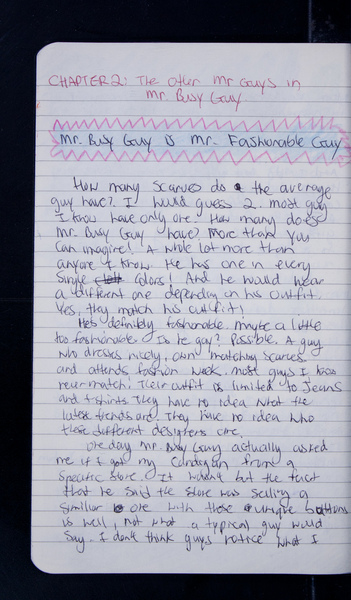 CHAPTER 2: The other Mr Guys in
Mr. Busy Guy
Mr. Busy Guy is Mr. Fashionable Guy
How many Scarves do the average
guy have? I would guess 2. most guys
I know have only one. How many does
Mr. Busy Guy have? More than you
can imagine! A whole lot more than
anyone I know. He has one in every
Single Colors! And he would wear
a different one depending on his outfit.
Yes, they match his outfit!
He's definitely fashionable. maybe a little
too fashionable. Is he gay? Possible. A guy
who dresses nicely, own matching scarves
and attends fashion week. most guys I know
never match. Their outfit is limited to Jeans
and t-shirts. They have no idea what the
latest trends are. They have no idea who
these different designers are.
One day Mr. Busy Guy actually asked
me if I got my Cardigan from a
Specific Store. It wasn't but the fact
that he said the store was selling a
similar one with these unique buttons
is well, not what a typical guy would
Say. I don't think guys notice what I